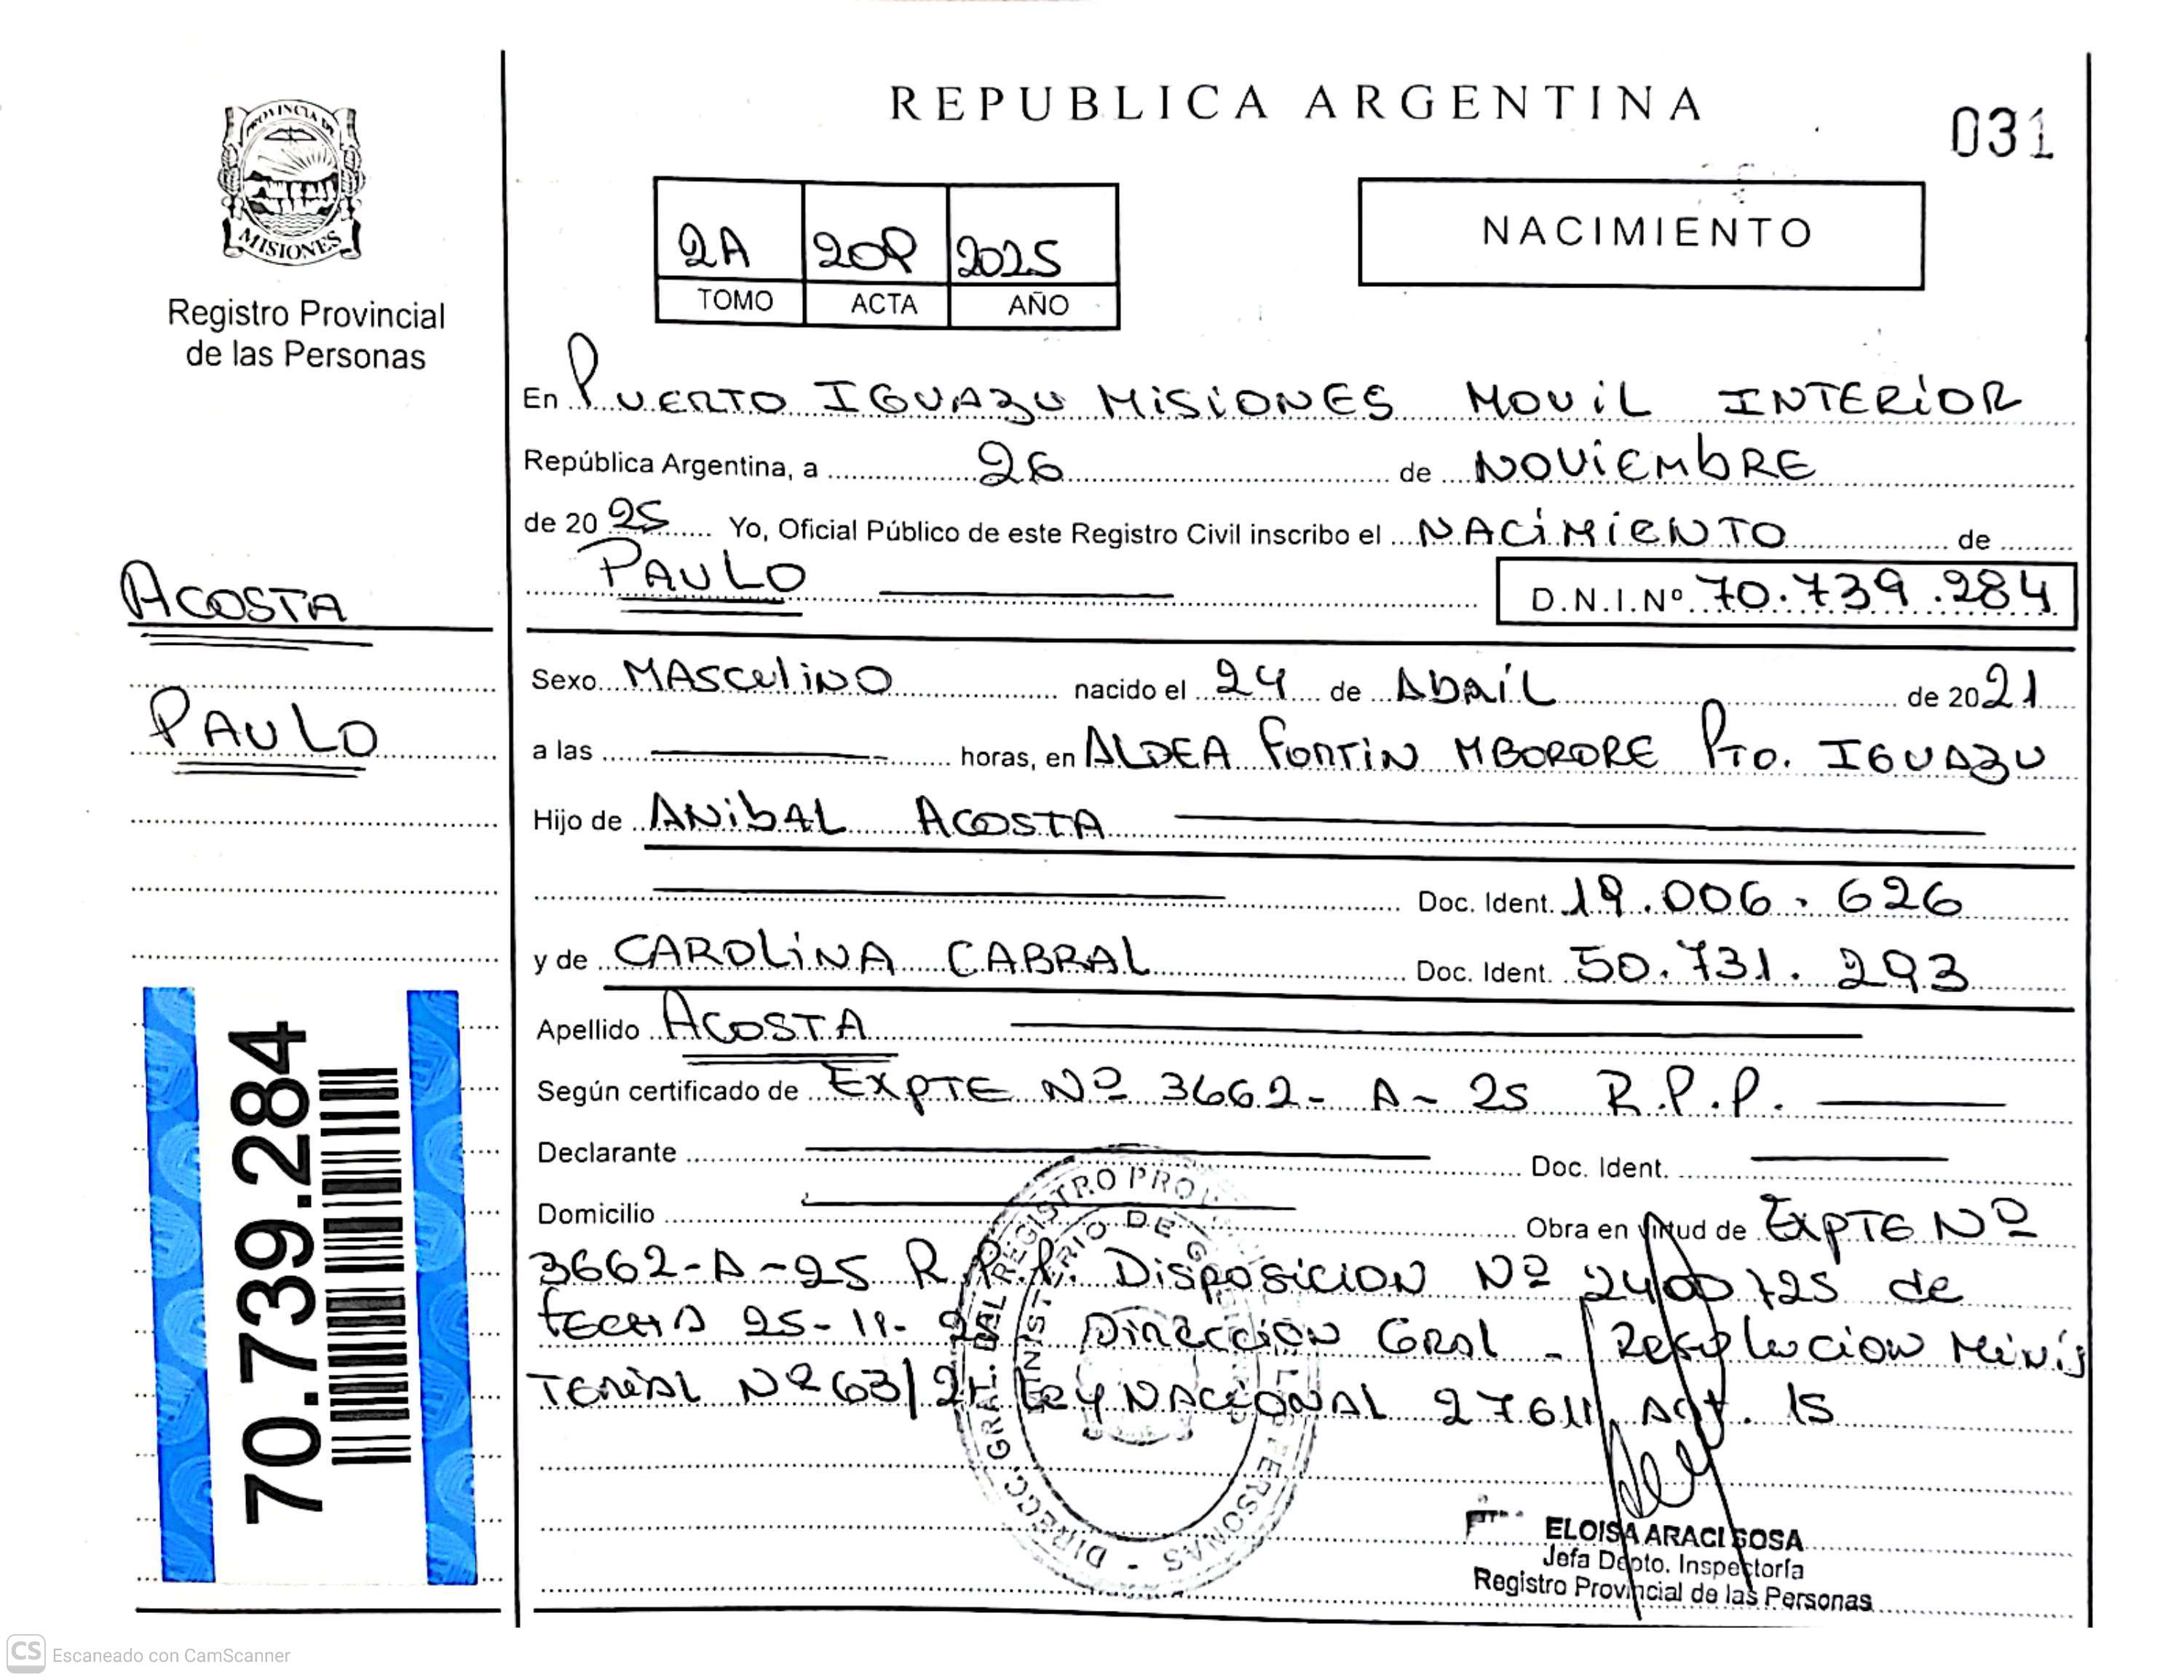 PROVINCIA DE
MISIONES
Registro Provincial
de las Personas
ACOSTA
PAULO
70.739.284
REPUBLICA ARGENTINA
031
2A 209 2025
TOMO ACTA AÑO
NACIMIENTO
En PUERTO IGUAZU MISIONES MOVIL INTERIOR
República Argentina, a 26 de NOVIEMBRE
de 20 25 Yo, Oficial Público de este Registro Civil inscribo el NACIMIENTO de
PAULO D.N.I.Nº 70.739.284
Sexo MASCULINO nacido el 24 de ABRIL de 2021
a las horas, en ALDEA FORTIN MBORORE PTO. IGUAZU
Hijo de ANIBAL ACOSTA
Doc. Ident. 19.006.626
y de CAROLINA CABRAL Doc. Ident. 50.731.293
Apellido ACOSTA
Según certificado de EXPTE Nº 3662-A-25 R.P.P.
Declarante Doc. Ident.
Domicilio Obra en virtud de EXPTE Nº
3662-A-25 R.P.P. DISPOSICION Nº 2400/25 de
FECHA 25-11- DIRECCION GRAL - RESOLUCION MINIS
TERIAL Nº 63/21 LEY NACIONAL 27611 ART. 15
DIRECC. GRAL. DEL REGISTRO PROV PERSONAS
MINISTERIO DE G
ELOISA ARACI SOSA
Jefa Depto. Inspectoría
Registro Provincial de las Personas
CS Escaneado con CamScanner